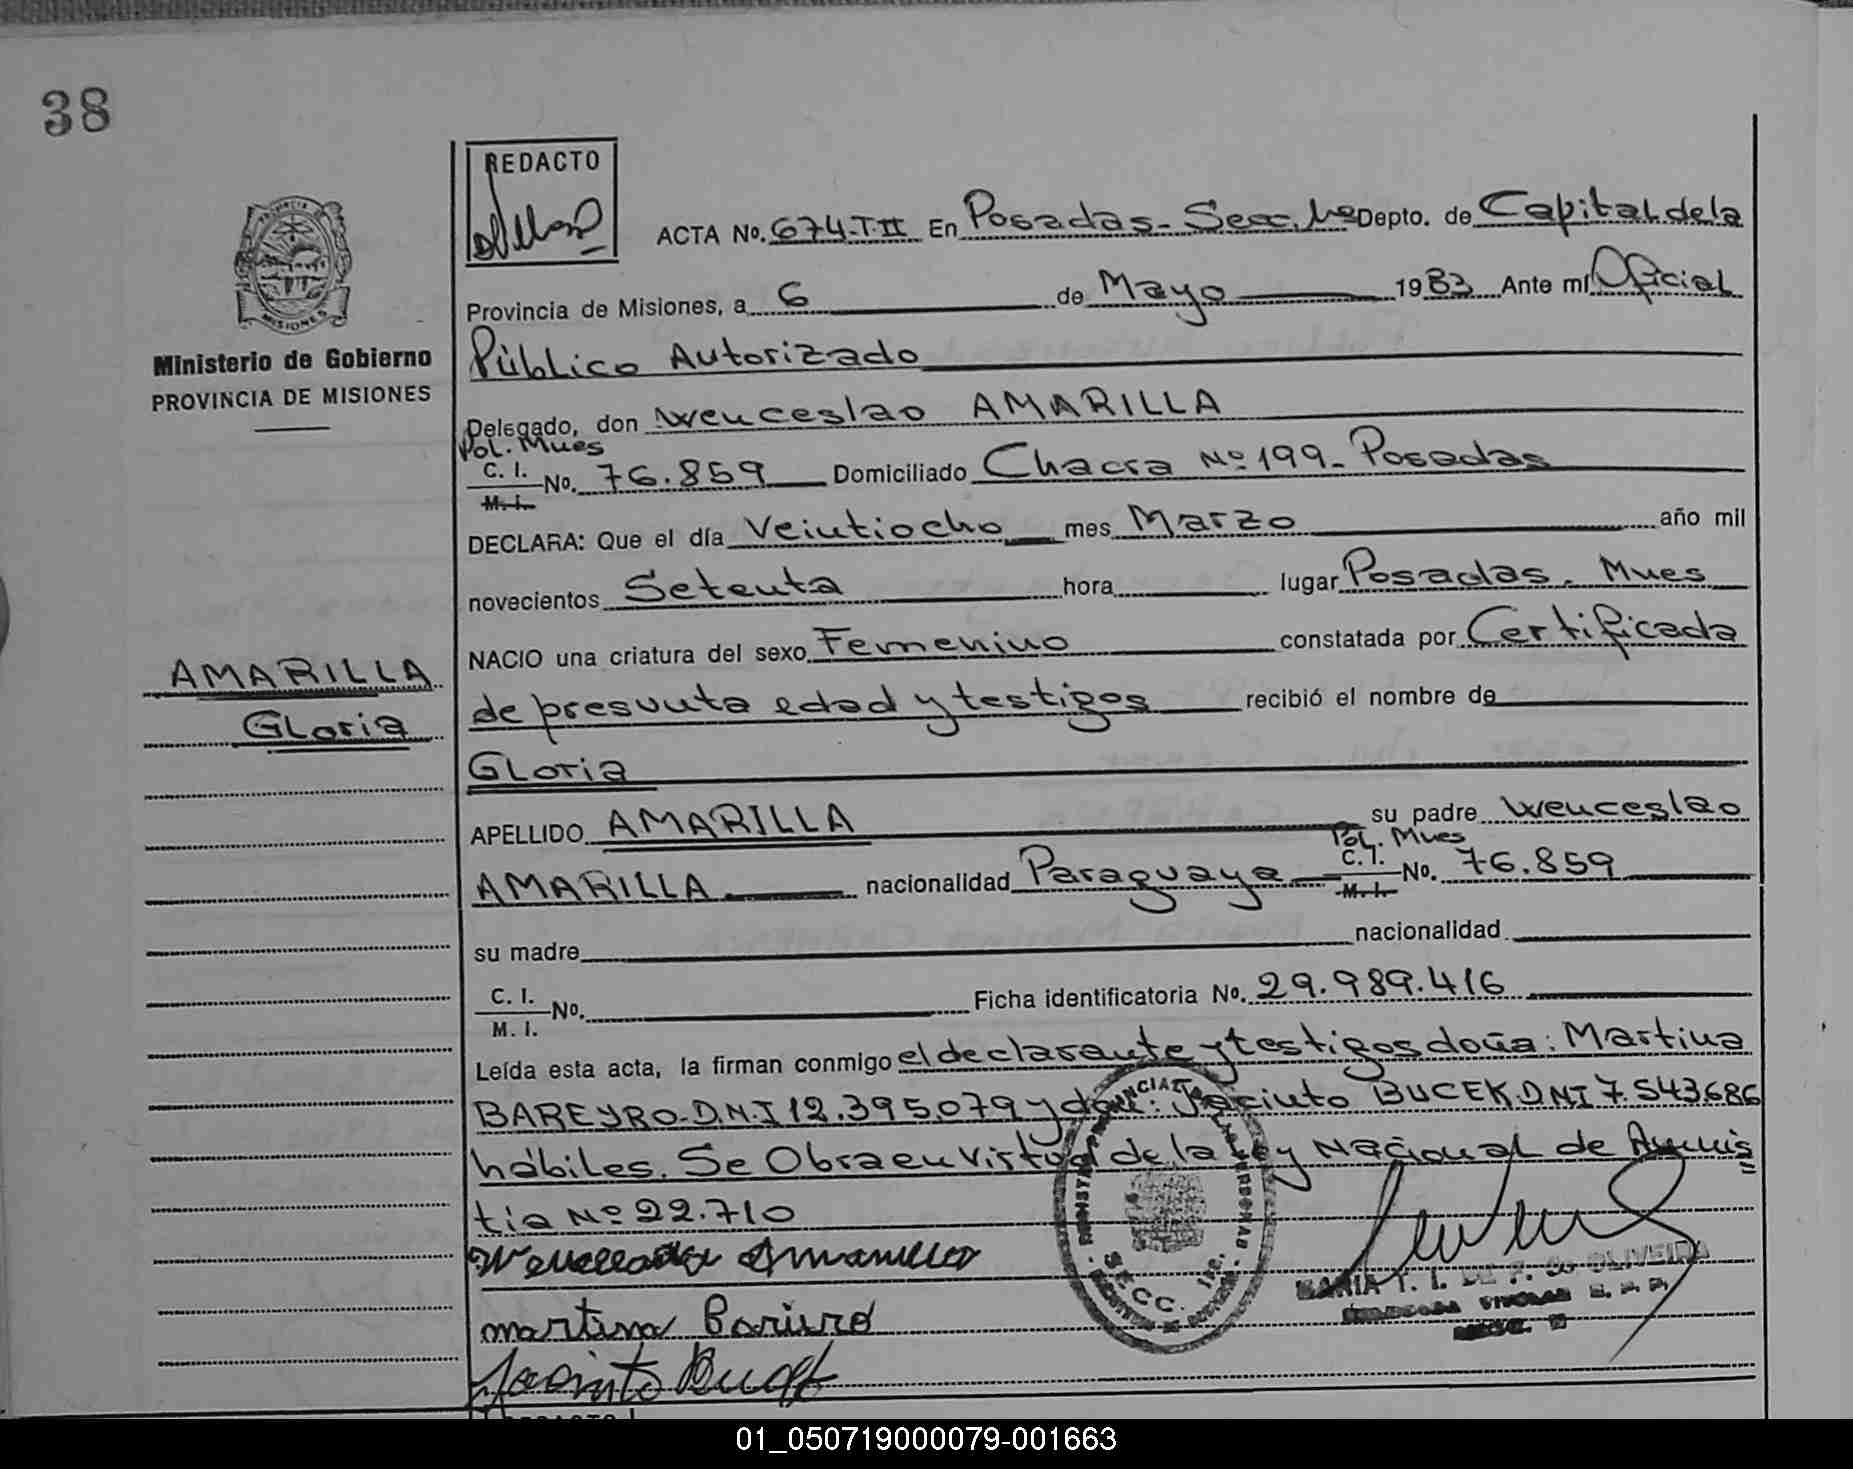 38
REDACTO
ACTA No. 674-T.II En Posadas - Secc. 1ª Depto. de Capital de la
Provincia de Misiones, a 6 de Mayo 1983 Ante mí Oficial
Público Autorizado
Ministerio de Gobierno
PROVINCIA DE MISIONES
Delegado, don Wenceslao AMARILLA
Pol. Mnes
C. I. M. I. No. 76.859 Domiciliado Chacra Nº 199 - Posadas
DECLARA: Que el día Veintiocho mes Marzo año mil
novecientos Setenta hora lugar Posadas. Mnes
NACIO una criatura del sexo Femenino constatada por Certificada
AMARILLA
Gloria
de presunta edad y testigos recibió el nombre de
Gloria
APELLIDO AMARILLA su padre Wenceslao
Pol. Mnes
AMARILLA nacionalidad Paraguaya C. I. M. I. No. 76.859
su madre nacionalidad
C. I. M. I. No. Ficha identificatoria No. 29.989.416
Leída esta acta, la firman conmigo el declarante y testigos doña: Martina
BAREYRO - D.N.I 12.395079 y don: Jacinto BUCEK D.N.I 7.543.686
hábiles. Se Obra en virtud de la Ley Nacional de Amnis
tía Nº 22.710
Amarilla
MARIA T. I. DE F. OLIVEIRA
martina Bariero
Jacinto
SECC. 1RA.
MISIONES
01_050719000079-001663